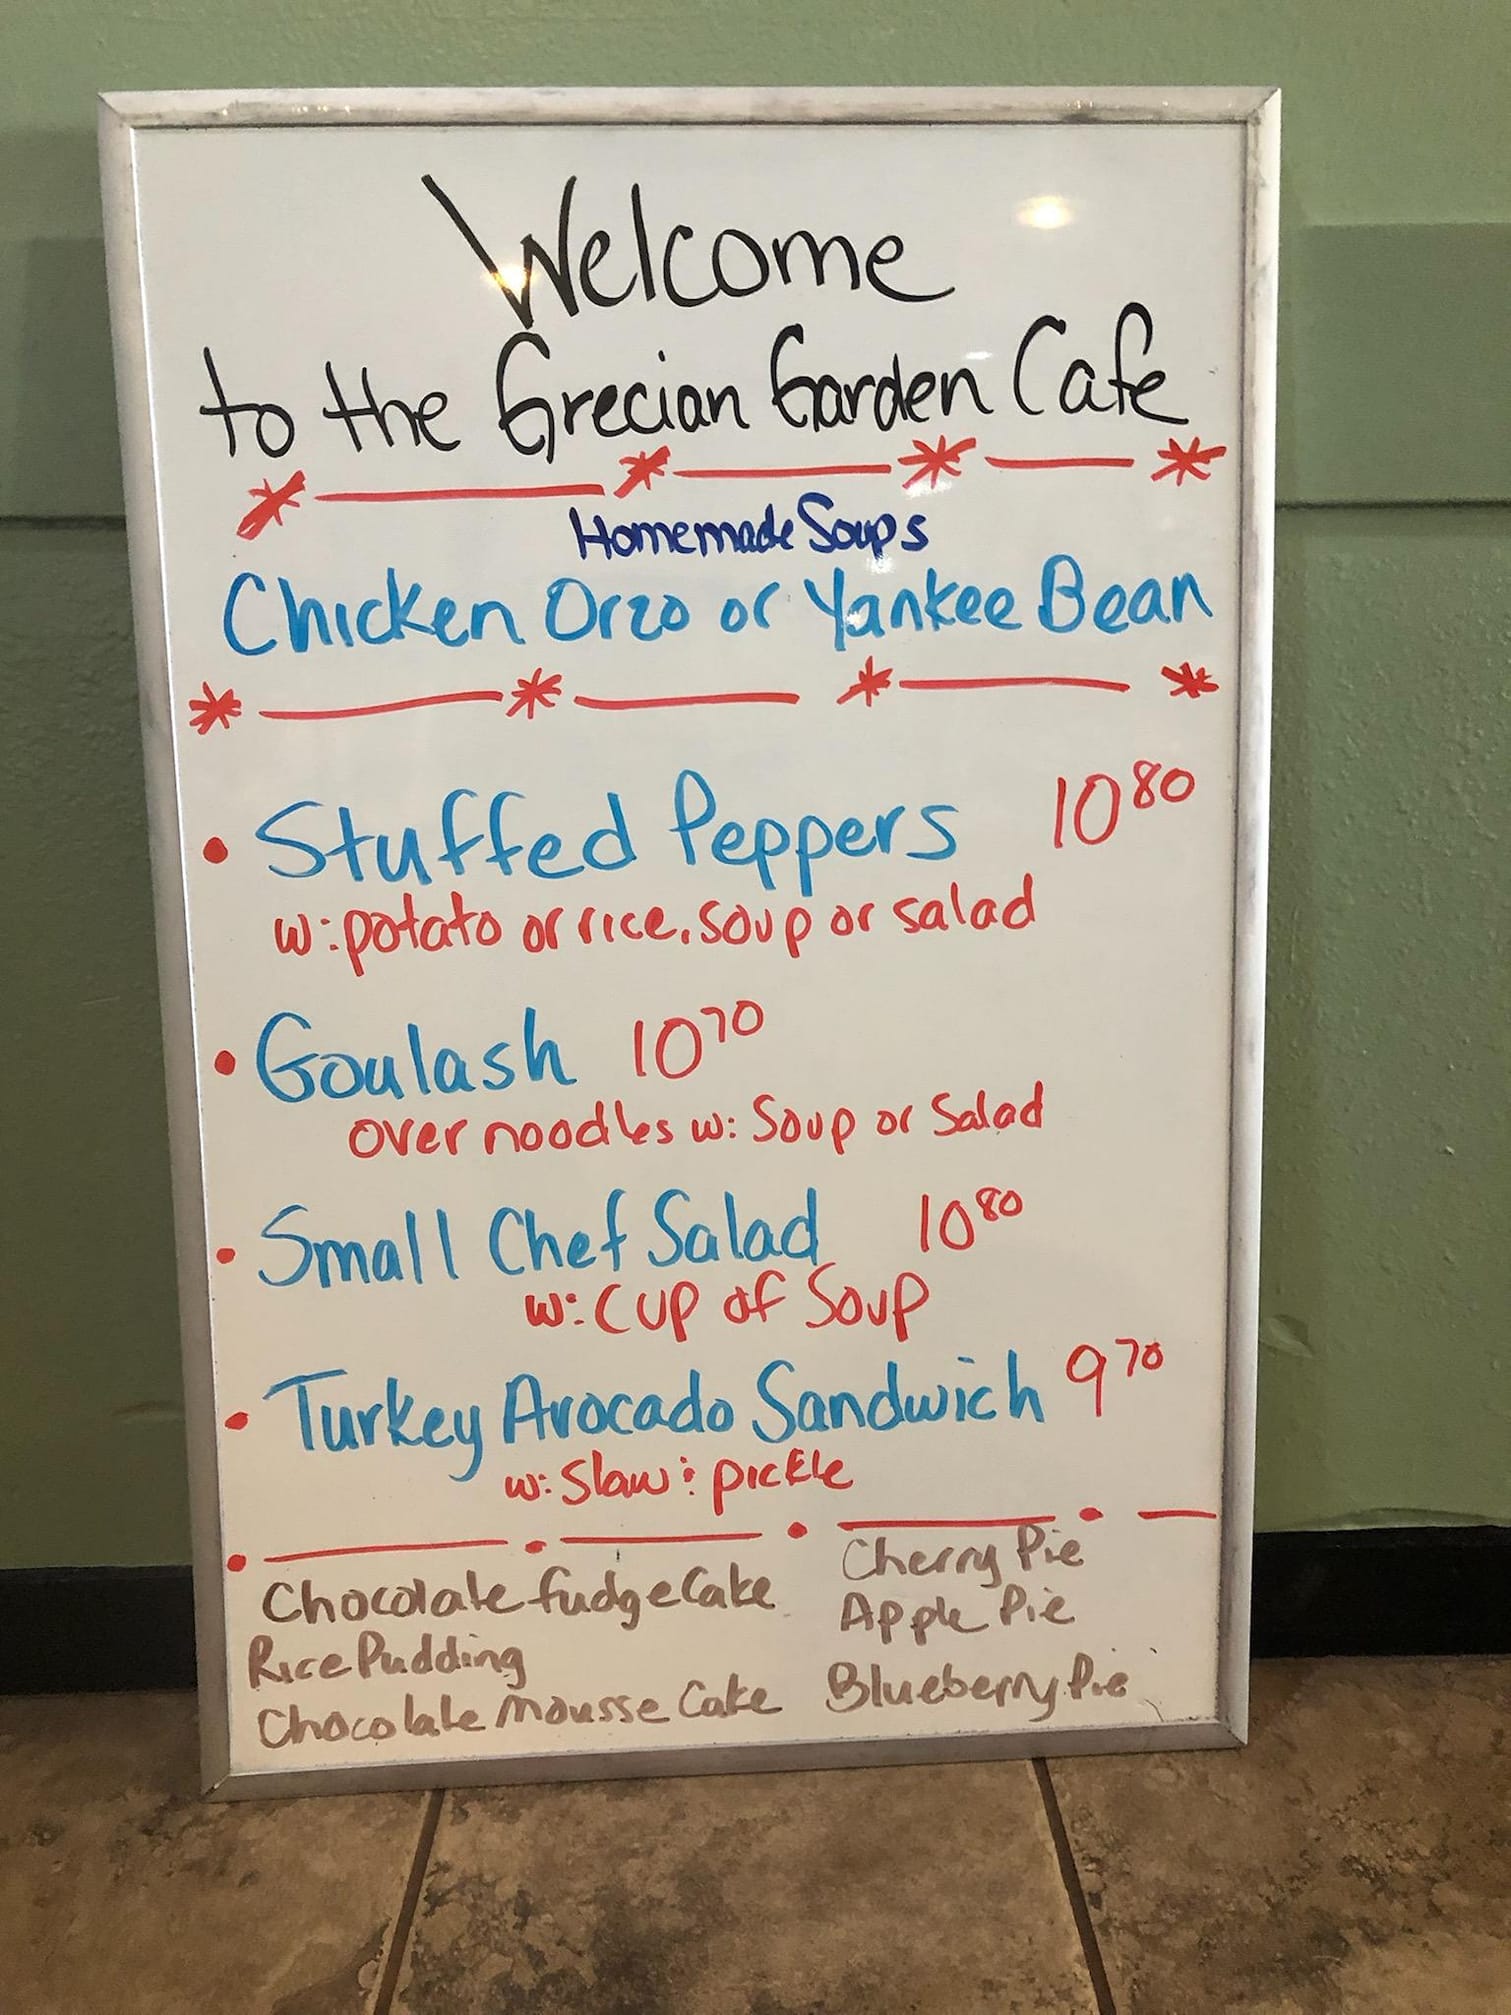 Welcome
to the Grecian Garden Cafe
Homemade Soups
Chicken Orzo or Yankee Bean
• Stuffed Peppers 10 80
w: potato or rice, soup or salad
• Goulash 10 70
over noodles w: Soup or Salad
• Small Chef Salad 10 80
w: Cup of Soup
• Turkey Avocado Sandwich 9 70
w: Slaw : pickle
Chocolate fudge Cake
Rice Pudding
Chocolate mousse Cake
Cherry Pie
Apple Pie
Blueberry Pie